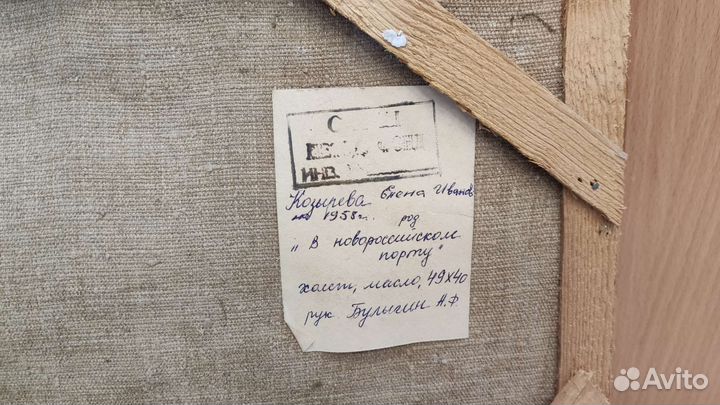 ИНВ.
Козырева Елена Иванов
1958 г. род
„В новороссийском
порту"
холст, масло, 49х40
рук. Булыгин А.Ф.
Avito